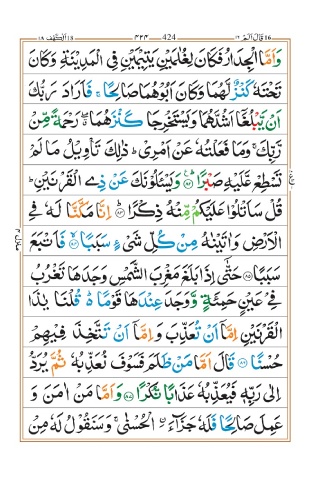 قال الم ١٦ 424 ٤٢٤ الكهف ١٨
وَاَمَّا الْجِدَارُ فَكَانَ لِغُلٰمَيْنِ يَتِيْمَيْنِ فِي الْمَدِيْنَةِ وَكَانَ
تَحْتَهٗ كَنْزٌ لَّهُمَا وَكَانَ اَبُوْهُمَا صَالِحًا ۚ فَاَرَادَ رَبُّكَ
اَنْ يَّبْلُغَاۤ اَشُدَّهُمَا وَيَسْتَخْرِجَا كَنْزَهُمَا ۖ رَحْمَةً مِّنْ
رَّبِّكَ ۚ وَمَا فَعَلْتُهٗ عَنْ اَمْرِيْ ؕ ذٰلِكَ تَاْوِيْلُ مَا لَمْ
تَسْطِعْ عَّلَيْهِ صَبْرًا ۝۸۲ وَيَسْـَٔلُوْنَكَ عَنْ ذِي الْقَرْنَيْنِ ؕ
قُلْ سَاَتْلُوْا عَلَيْكُمْ مِّنْهُ ذِكْرًا ۝۸۳ اِنَّا مَكَّنَّا لَهٗ فِي
الْاَرْضِ وَاٰتَيْنٰهُ مِنْ كُلِّ شَيْءٍ سَبَبًا ۝۸۴ فَاَتْبَعَ
سَبَبًا ۝۸۵ حَتّٰۤى اِذَا بَلَغَ مَغْرِبَ الشَّمْسِ وَجَدَهَا تَغْرُبُ
فِيْ عَيْنٍ حَمِئَةٍ وَّوَجَدَ عِنْدَهَا قَوْمًا ؕ قُلْنَا يٰذَا
الْقَرْنَيْنِ اِمَّاۤ اَنْ تُعَذِّبَ وَاِمَّاۤ اَنْ تَتَّخِذَ فِيْهِمْ
حُسْنًا ۝۸۶ قَالَ اَمَّا مَنْ ظَلَمَ فَسَوْفَ نُعَذِّبُهٗ ثُمَّ يُرَدُّ
اِلٰى رَبِّهٖ فَيُعَذِّبُهٗ عَذَابًا نُّكْرًا ۝۸۷ وَاَمَّا مَنْ اٰمَنَ وَ
عَمِلَ صَالِحًا فَلَهٗ جَزَآءَ ۨالْحُسْنٰى ۚ وَسَنَقُوْلُ لَهٗ مِنْ